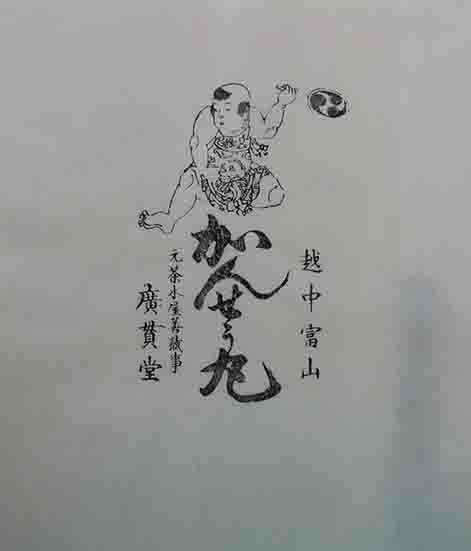 越中富山
かんせう丸
元茶木屋善蔵事
廣貫堂